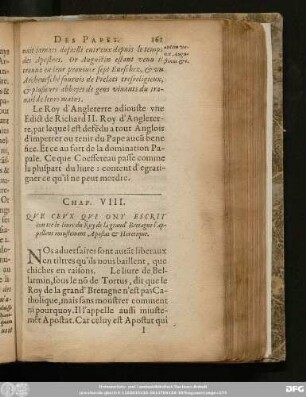 DES PAPES. 161
uoit iamais
des Apostres. Or Augustin estant venu
trouua en leur prouince sept Euesches, & vn
Archeuesché fournis de Prelats tresreligieux,
& plusieurs abbayes de gens viuants du tra-
uail de leurs mains.
Le Roy d'Angleterre adiouste vne
Edict de Richard II. Roy d'Angleter-
re, par lequel est defédu à tout Anglois
d'impetrer ou tenir du Pape aucū bene-
fice. Et ce au fort de la domination Pa-
pale. Ce que Coeffeteau passe comme
la pluspart du liure : content d'egrati-
gner ce qu'il ne peut mordre.
CHAP. VIII.
QVE CEVX QVI ONT ESCRIT
contre le liure du Roy de la grand' Bretagne l'ap-
pellent iniustement Apostat & Heretique.
NOs aduersaires sont aussi liberaux
en tiltres qu'ils nous baillent, que
chiches en raisons. Le liure de Bel-
larmin, sous le nō de Tortus, dit que le
Roy de la grand' Bretagne n'est pas Ca-
tholique, mais sans monstrer comment
ni pourquoy. Il l'appelle aussi iniuste-
mét Apostat. Car celuy est Apostat qui
I